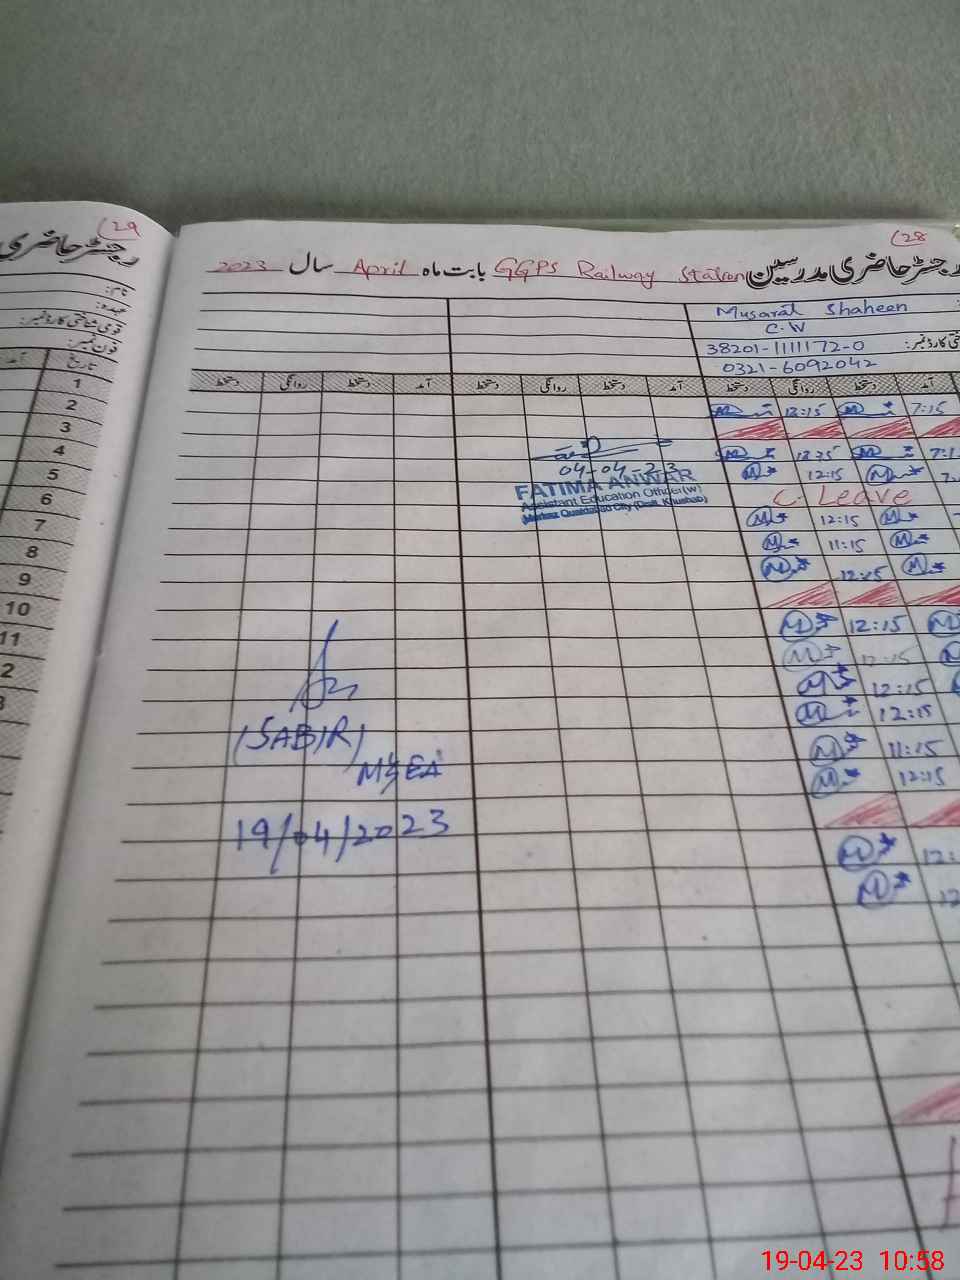 (29
رجسٹر حاضری
نام:
عہدہ:
قومی شناختی کارڈ نمبر:
فون نمبر:
آمد تاریخ
1
2
3
4
5
6
7
8
9
10
11
2
3
(28
رجسٹر حاضری مدرسین GGPS Railway Station بابت ماہ April سال 2023
Musarat Shaheen
C.W
38201-1111172-0
0321-6092042
آمد دستخط روانگی دستخط آمد دستخط روانگی دستخط آمد دستخط روانگی دستخط
7:15 12:15
12:15
12:15
04-04-23
FATIMA ANWAR
Assistant Education Officer(w)
Markaz Quaidabad City (Distt. Khushab)
C. Leave
12:15
11:15
12:15
12:15
12:15
12:15
12:15
11:15
12:15
12:
12
(SABIR)
MEA
19/04/2023
19-04-23 10:58